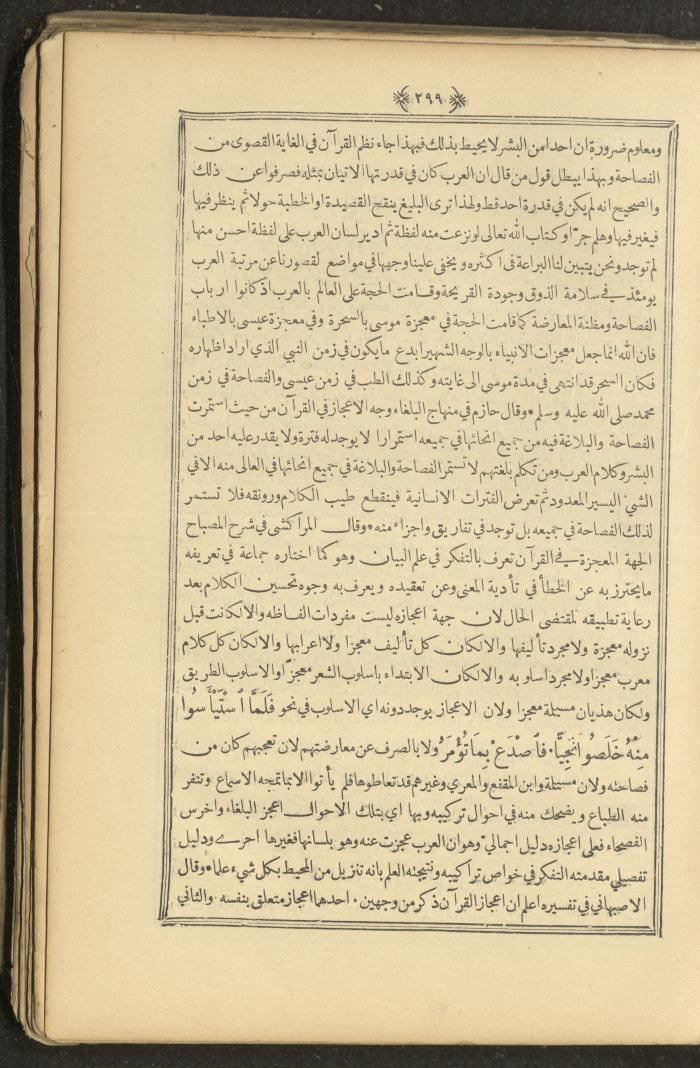 ٢٩٩
ومعلوم ضرورة ان احدا من البشر لا يحيط بذلك فبهذا جاء نظم القرآن في الغاية القصوى من
الفصاحة وبهذا يبطل قول من قال ان العرب كان في قدرتها الاتيان بمثله فصرفوا عن ذلك
والصحيح انه لم يكن في قدرة احد قط ولهذا ترى البليغ ينقح القصيدة او الخطبة حولا ثم ينظر فيها
فيغير فيها وهلم جرّا وكتاب الله تعالى لو نزعت منه لفظة ثم ادير لسان العرب على لفظة احسن منها
لم توجد ونحن يتبين لنا البراعة في اكثره ويخفى علينا وجهها في مواضع لقصورنا عن مرتبة العرب
يومئذ في سلامة الذوق وجودة القريحة وقامت الحجة على العالم بالعرب اذ كانوا ارباب
الفصاحة ومظنة المعارضة كما قامت الحجة في معجزة موسى بالسحرة وفي معجزة عيسى بالاطباء
فان الله انما جعل معجزات الانبياء بالوجه الشهير ابدع ما يكون في زمن النبي الذي اراد اظهاره
فكان السحر قد انتهى في مدة موسى الى غايته وكذلك الطب في زمن عيسى والفصاحة في زمن
محمد صلى الله عليه وسلم * وقال حازم في منهاج البلغاء وجه الاعجاز في القرآن من حيث استمرت
الفصاحة والبلاغة فيه من جميع انحائها في جميعه استمرارا لا يوجد له فترة ولا يقدر عليه احد من
البشر وكلام العرب ومن تكلم بلغتهم لا تستمر الفصاحة والبلاغة في جميع انحائها في العالى منه الا في
الشيء اليسير المعدود ثم تعرض الفترات الانسانية فينقطع طيب الكلام ورونقه فلا تستمر
لذلك الفصاحة في جميعه بل توجد في تفاريق واجزاء منه * وقال المراكشي في شرح المصباح
الجهة المعجزة في القرآن تعرف بالتفكر في علم البيان وهو كما اختاره جماعة في تعريفه
ما يحترز به عن الخطأ في تأدية المعنى وعن تعقيده ويعرف به وجوه تحسين الكلام بعد
رعاية تطبيقه لمقتضى الحال لان جهة اعجازه ليست مفردات الفاظه والا لكانت قبل
نزوله معجزة ولا مجرد تأليفها والا لكان كل تأليف معجزا ولا اعرابها والا لكان كل كلام
معرب معجزا ولا مجرد اسلوبه والا لكان الابتداء باسلوب الشعر معجزًا والاسلوب الطريق
ولكان هذيان مسيلة معجزا ولان الاعجاز يوجد دونه اي الاسلوب في نحو فَلَمَّا ٱسْتَيْأَسُوا
مِنْهُ خَلَصُوا نَجِيًّا. فَٱصْدَعْ بِمَا تُؤْمَرُ ولا بالصرف عن معارضتهم لان تعجبهم كان من
فصاحته ولان مسيلة وابن المقفع والمعري وغيرهم قد تعاطوها فلم يأتوا الا بما تمجه الاسماع وتنفر
منه الطباع ويضحك منه في احوال تركيبه وبها اي بتلك الاحوال اعجز البلغاء واخرس
الفصحاء فعلى اعجازه دليل اجمالي وهو ان العرب عجزت عنه وهو بلسانها فغيرها احرى ودليل
تفصيلي مقدمته التفكر في خواص تراكيبه ونتيجته العلم بانه تنزيل من المحيط بكل شيء علما * وقال
الاصبهاني في تفسيره اعلم ان اعجاز القرآن ذكر من وجهين. احدهما اعجاز متعلق بنفسه والثاني